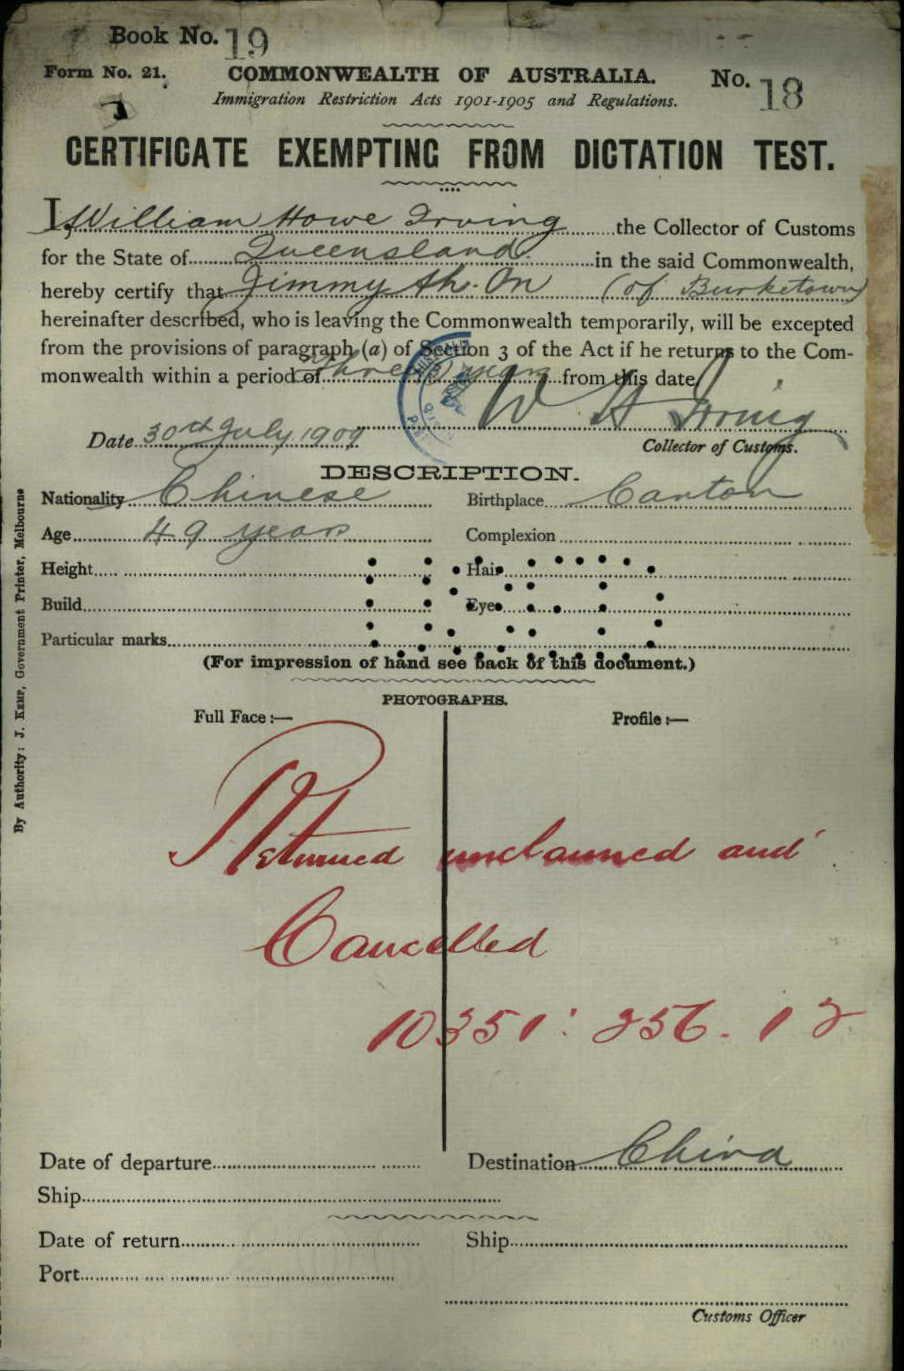 Book No. 19
Form No. 21.
COMMONWEALTH OF AUSTRALIA.
No. 18
Immigration Restriction Acts 1901-1905 and Regulations.
CERTIFICATE EXEMPTING FROM DICTATION TEST.
I, William Howe Irving the Collector of Customs
for the State of Queensland in the said Commonwealth,
hereby certify that Jimmy Ah On (of Burketown)
hereinafter described, who is leaving the Commonwealth temporarily, will be excepted
from the provisions of paragraph (a) of Section 3 of the Act if he returns to the Com-
monwealth within a period of three (3) years from this date.
W H Irving
Date 30th July, 1909
Collector of Customs.
DESCRIPTION.
Nationality Chinese Birthplace Canton
Age 49 years Complexion
Height Hair
Build Eyes
Particular marks
(For impression of hand see back of this document.)
PHOTOGRAPHS.
Full Face:— Profile:—
Returned unclaimed and
Cancelled
10351: 256. 12
Date of departure Destination China
Ship
Date of return Ship
Port
Customs Officer
By Authority: J. Kemp, Government Printer, Melbourne